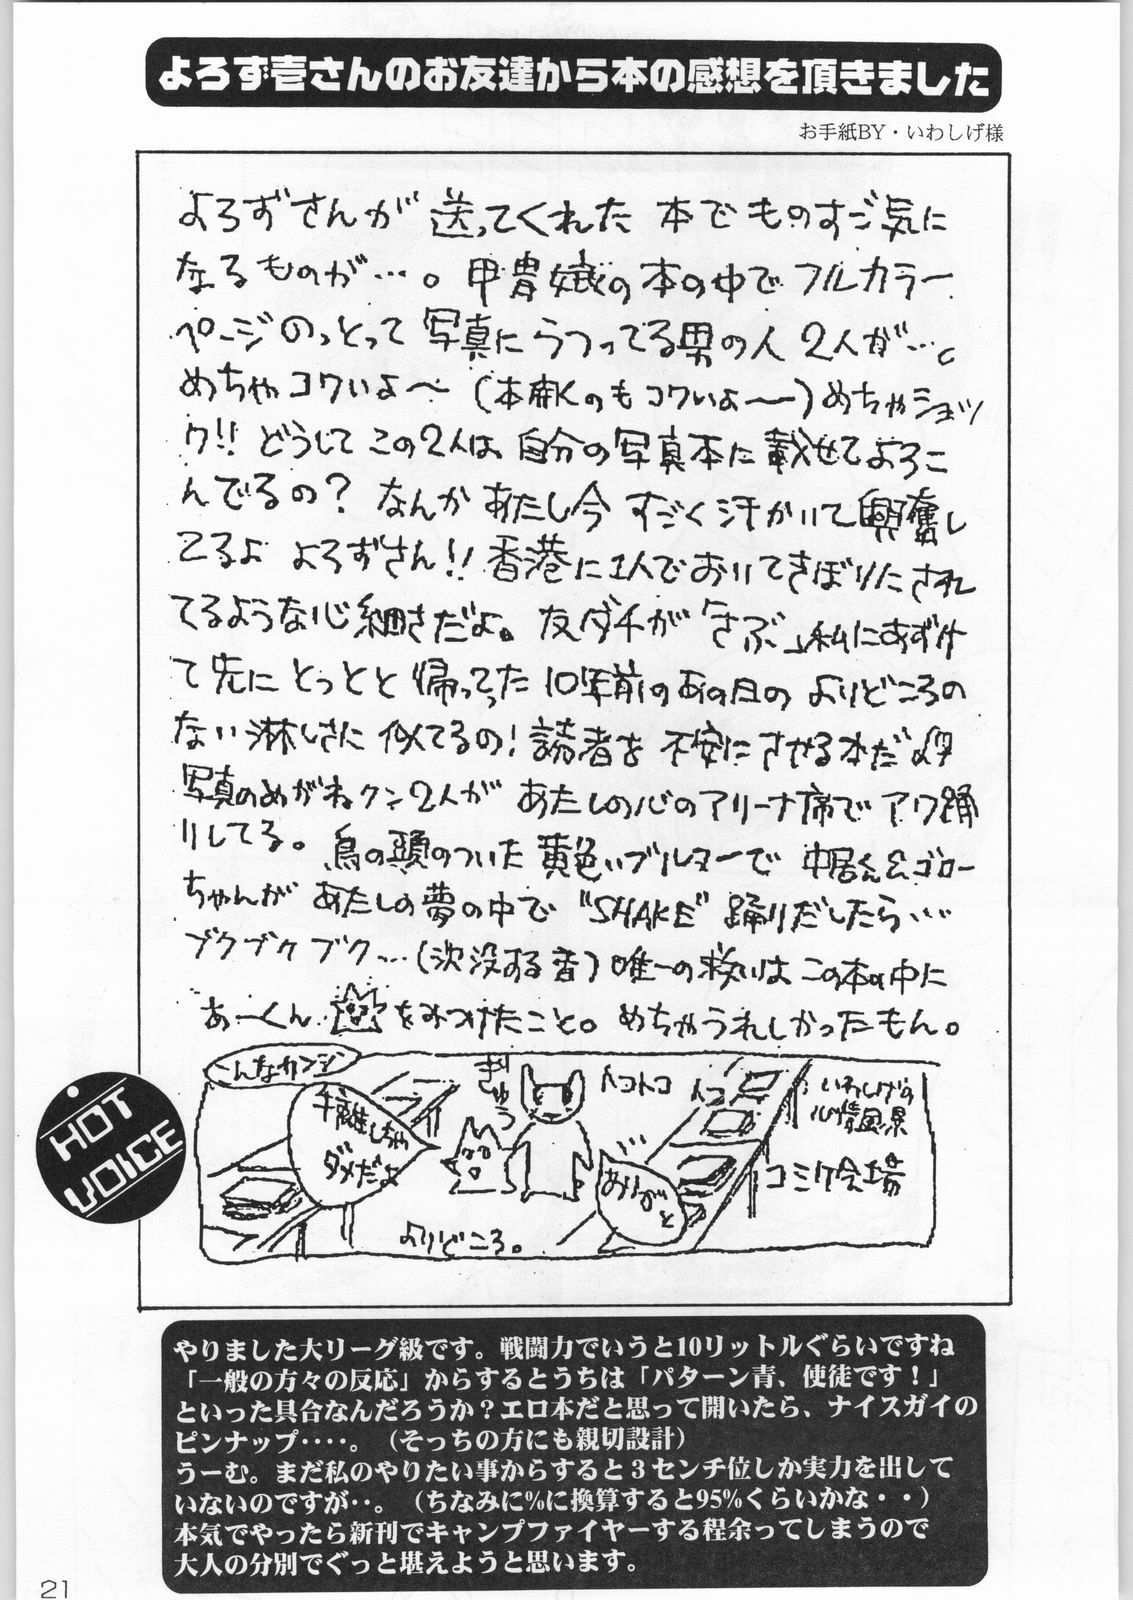 よろず壱さんのお友達から本の感想を頂きました
お手紙BY・いわしげ様
よろずさんが 送ってくれた 本で ものすご気に
なるものが…。甲冑娥の本の中で フルカラー
ページのっとって 写真に うつってる男の人 2人が…。
めちゃコワいよ〜 (本気くのも コワいよ〜) めちゃショッ
ク!! どうして この2人は 自分の写真本に 載せてよろこ
んでるの? なんか あたし今 すごく汗かいて興奮し
てるよ よろずさん!! 香港に1人でおいてきぼりにされ
てるような心細さだよ。友ダチが「さぶ」私にあずけ
て先に とっとと 帰ってった 10年前のあの日の よりどころの
ない淋しさに 似てるの! 読者を 不安にさせる本だよ
写真のめがねクン2人が あたしの心のアリーナ席で アワ踊
りしてる。鳥の頭のついた 黄色いブルマーで 中居くん&ゴロー
ちゃんが あたしの夢の中で "SHAKE" 踊りだしたら…
ブクブクブク…(沈没する音) 唯一の救いは この本の中に
あーくん を みつけたこと。めちゃうれしかったもん。
こんなカンジ
手離しちゃ
ダメだよ
ぎゅう
トコトコ
トコ
ありがと
よりどころ。
いわしげの
心情風景
コミケ会場
HOT
VOICE
やりました大リーグ級です。戦闘力でいうと10リットルぐらいですね
「一般の方々の反応」からするとうちは「パターン青、使徒です！」
といった具合なんだろうか？エロ本だと思って開いたら、ナイスガイの
ピンナップ‥‥。（そっちの方にも親切設計）
うーむ。まだ私のやりたい事からすると３センチ位しか実力を出して
いないのですが‥。（ちなみに%に換算すると95%くらいかな・・）
本気でやったら新刊でキャンプファイヤーする程余ってしまうので
大人の分別でぐっと堪えようと思います。
21